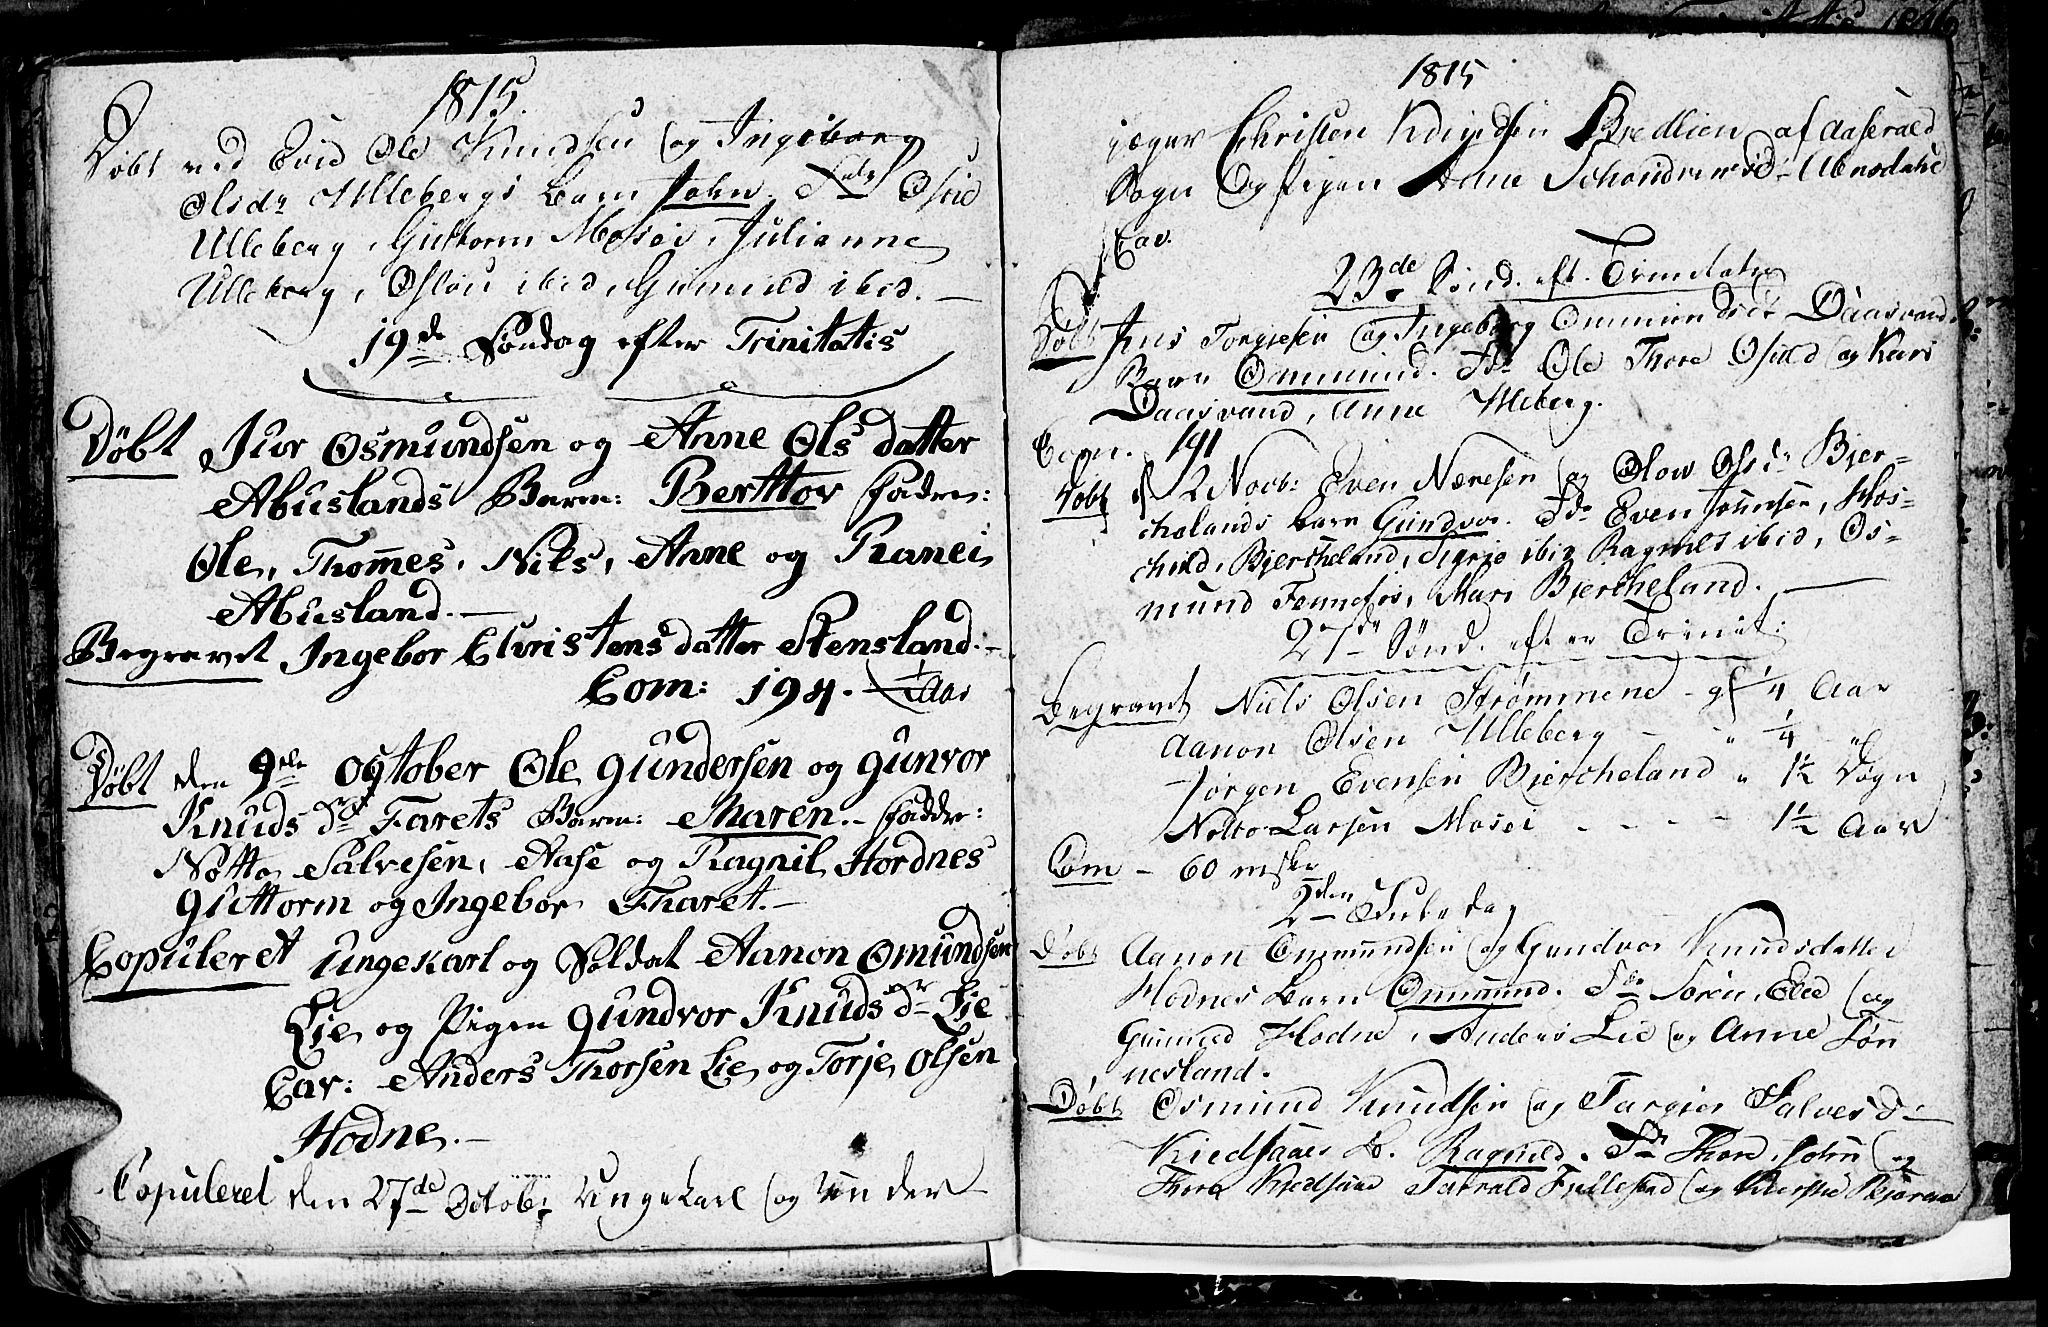 1815.
Döbt ved Evid Ole Knudsen og Ingeborg
Olsdr Ullebergs barn John. Fadr Osud
Ulleberg, Guttorm Mosei, Julianne
Ulleberg, Oslou ibid, Gunnuld ibid. —
19de Söndag efter Trinitatis
Döbt Iver Osmundsen og Anne Ols datter
Abuslands Barn: Berttov Fadre:
Ole, Thom̅es, Niels, Anne og Ranei
Abusland. —
Begravet Ingebor Christens datter Stensland. —
Com: 194. — 1/4 Aar
Döbt den 9de October Ole Gundersen og Gunvor
Knuds dr Farets Barn: Maren. — Faddre:
Notto Salvesen, Aase og Ragnil Hordnes
Guttorm og Ingebor Tharet. —
Copuleret Ungekarl og Soldat Aanon Omundsen
Lie og Pigen Gundvor Knuds dr Lie
Cav: Anders Thorsen Lie og Torje Olsen
Hodne. —
Copuleret den 27de Octobr Ungekarl og under
1815
jæger Christen Knudsen af Aaserald
Sogn og Pigen Anne
Cav.
23de Sönd. eft. Trinitatis
Döbt Jens Torgjesen og Ingeborg Ommunds dr Daasvand
Barn Ommund. Fdr Ole Thore Osuld og Kari
Daasvand, Anne Ulleberg.
Com. 191
Döbt d 2 Novb: Even og Olow Olsdr Bjer-
chelands barn Gundvor. Fdr Even Jörunsen, Hos-
child Bjercheland, Sigrid ibid Ragnild ibid, Os-
mund Fennefos, Mari Bjercheland. —
27de Sönd. efter Trinit:
Begravet Niels Olsen Strömmene - gl 1/4 Aar
Aanon Olsen Ulleberg - - " 1/4 - "
Jörgen Evensen Bjercheland " 1 1/2 Dögn
Notto Larsen Mosei - - - - 1 1/2 Aar
Com - 60 msker
2den Juledag
Döbt Aanon Ommundsen og Gundvor Knudsdatter
Hodnes barn Ommund. Fdr Sören, Eled og
Gunnuld Hodne, Anders Lie og Anne Tön
nesland.
Döbt Osmund Knudsen og Targier Salvesdr
Kiedsaaes B. Ragnild. Fdr Thore, John og
Thore Kiedsaae Tarald Fjellestad og